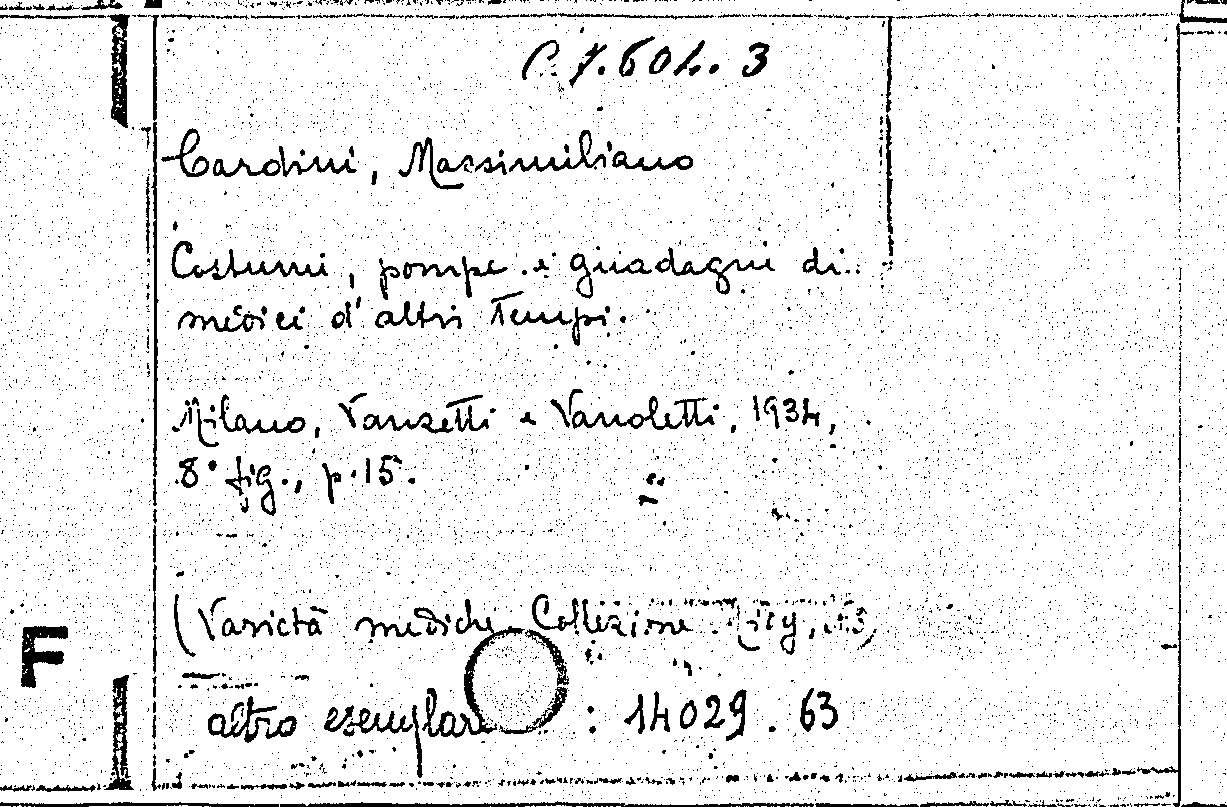 C. 7. 604. 3
Cardini, Massimiliano
Costumi, pompe e guadagni di
medici d'altri tempi.
Milano, Vanzetti e Vanoletti, 1934,
8° fig., p. 15.
(Varietà mediche. Collezione
altro esemplare : 14029 . 63
F